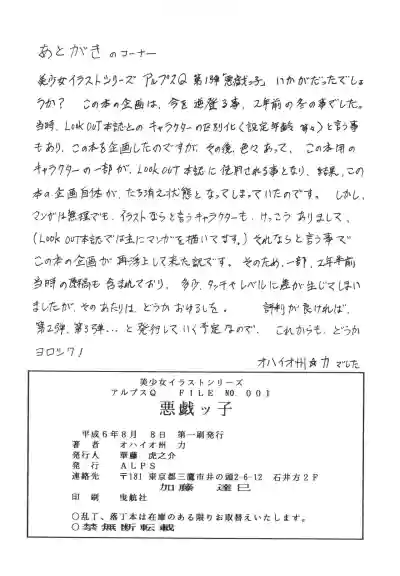 あとがきのコーナー
美少女イラストシリーズ アルプスQ 第1弾「悪戯っ子」いかがだったでしょ
うか？ この本の企画は、今を遡る事、2年前の冬の事でした。
当時、LOOK OUT本誌とのキャラクターの区別化(設定年齢等々)と言う事
もあり、この本を企画したのですが、その後、色々あって、この本用の
キャラクターの一部が、LOOK OUT本誌に使用される事となり、結果、この
本の企画自体が、たち消え状態となってしまっていたのです。しかし、
マンガは無理でも、イラストならと言うキャラクターも、けっこうありまして、
(LOOK OUT本誌では主にマンガを描いてます。)それならと言う事で
この本の企画が再浮上して来た訳です。そのため、一部、2年半前
当時の原稿も含まれており、多少、タッチやレベルに差が生じてしまい
ましたが、そのあたりは、どうかお許しを。 評判が良ければ、
第2弾、第3弾…と発行していく予定なので、これからも、どうか
ヨロシク！
オハイオ州☆力でした
美少女イラストシリーズ
アルプスQ FILE NO.001
悪戯ッ子
平成6年8月8日 第一刷発行
著者 オハイオ州 力
発行人 華藤 虎之介
発行 ALPS
連絡先 〒181 東京都三鷹市井の頭2-6-12 石井方2F
加藤 達巳
印刷 曳航社
○乱丁、落丁本は在庫のある限りお取替えいたします。
○禁無断転載